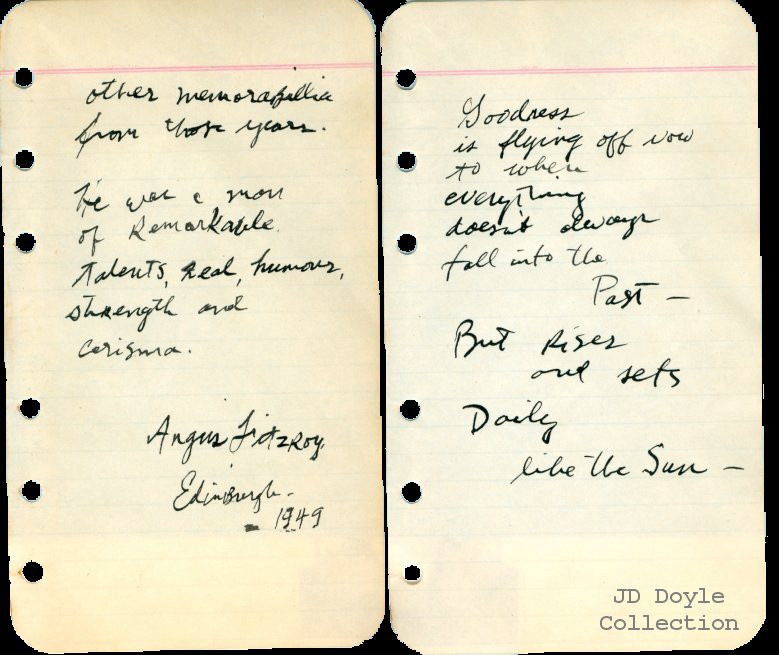 other memorabillia
from those years.
He was a man
of Remarkable
talents, zeal, humour,
strength and
carisma.
Angus Fitzroy
Edinburgh -
- 1949
Goodness
is flying off now
to where
everything
doesn't always
fall into the
Past -
But rises
and sets
Daily
like the Sun -
JD Doyle
Collection